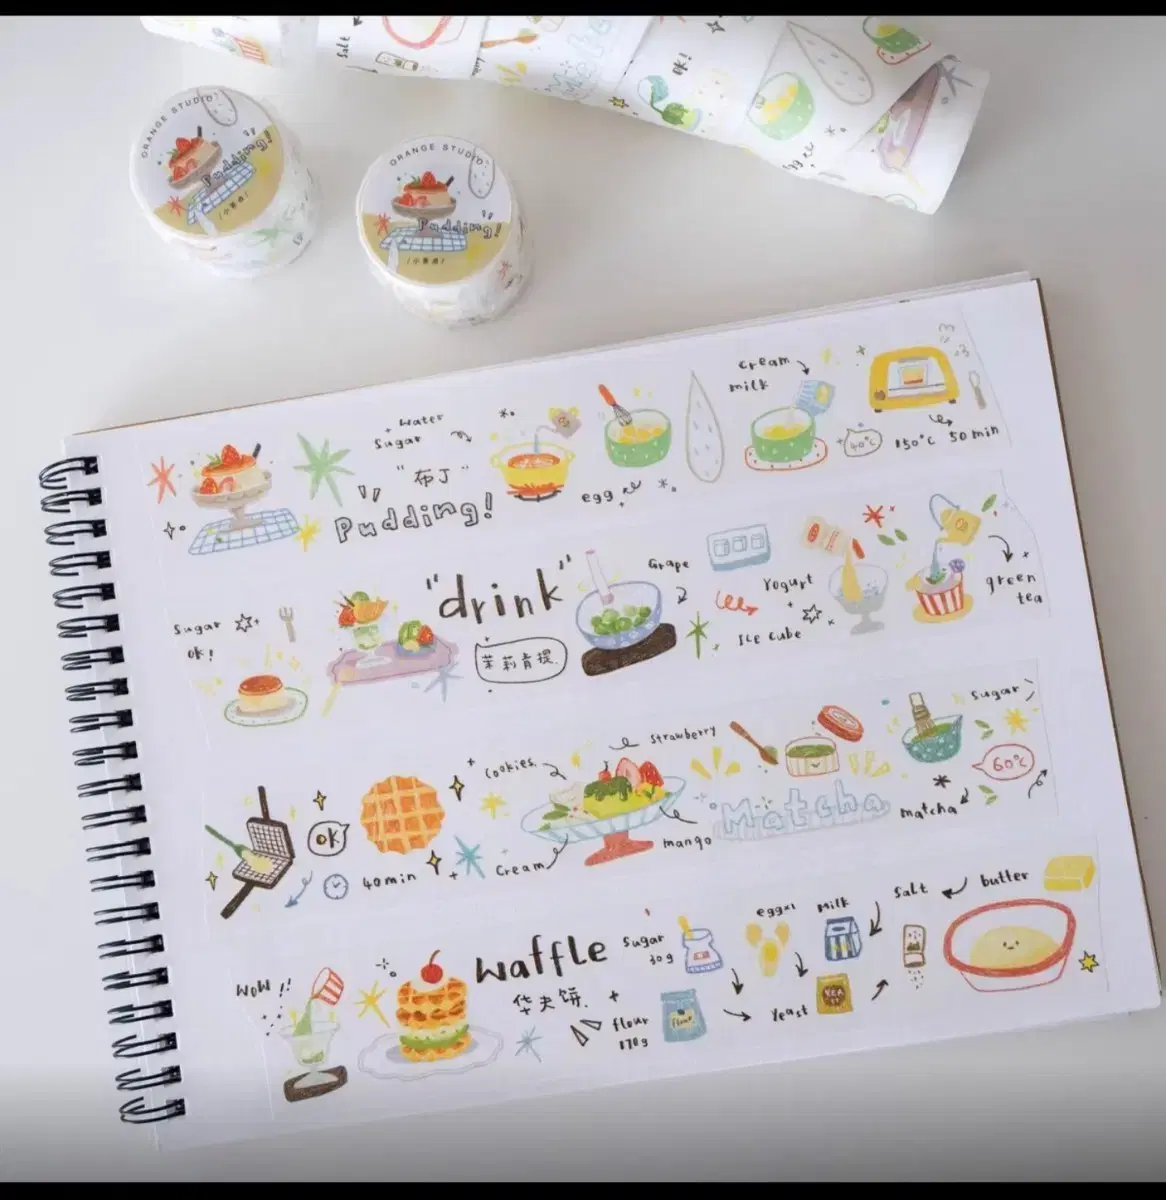 Salt
OK!
egg
ORANGE STUDIO
Pudding!
ORANGE STUDIO
Pudding!
water
sugar
"布丁"
Pudding!
egg
cream
milk
40°C
150°C 50 min
Sugar
OK!
"drink"
茉莉青提
Grape
Yogurt
Ice cube
green
tea
OK
40min
Cookies
Cream
strawberry
mango
Matcha
matcha
sugar
60°C
WOW!!
waffle
华夫饼
Sugar
30g
flour
170g
flour
eggx1
Milk
Yeast
salt
butter